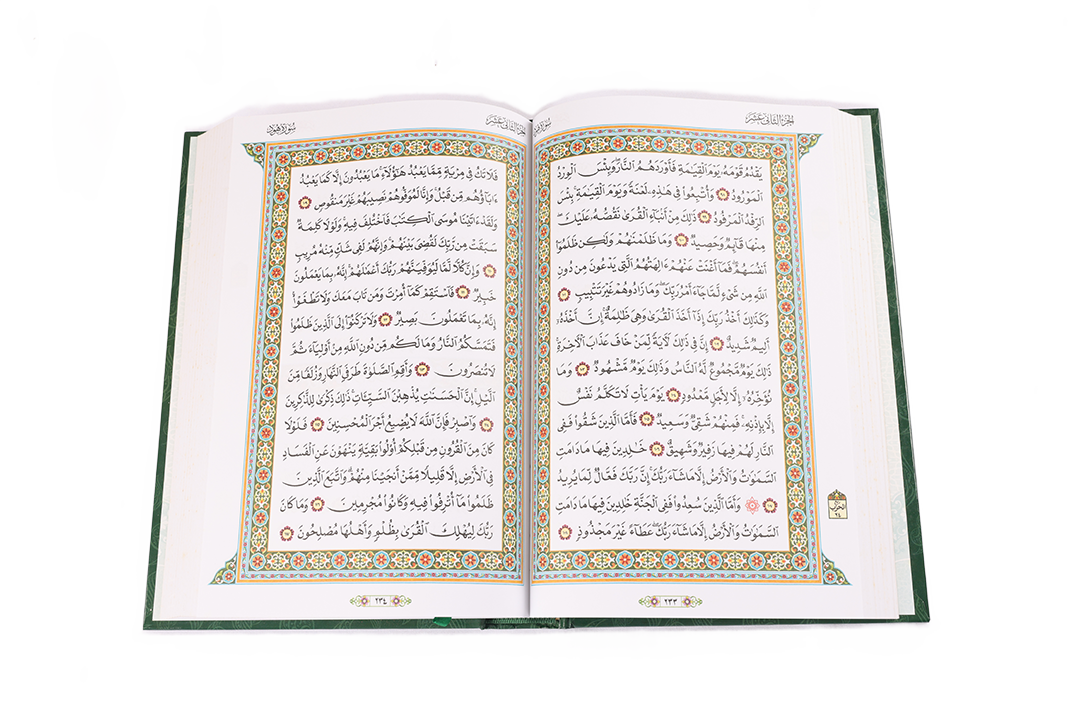 الجزء الثاني عشر
سورة هود
يَقْدُمُ قَوْمَهُۥ يَوْمَ ٱلْقِيَٰمَةِ فَأَوْرَدَهُمُ ٱلنَّارَ وَبِئْسَ ٱلْوِرْدُ
ٱلْمَوْرُودُ ٩٨ وَأُتْبِعُوا۟ فِى هَٰذِهِۦ لَعْنَةً وَيَوْمَ ٱلْقِيَٰمَةِ بِئْسَ
ٱلرِّفْدُ ٱلْمَرْفُودُ ٩٩ ذَٰلِكَ مِنْ أَنۢبَآءِ ٱلْقُرَىٰ نَقُصُّهُۥ عَلَيْكَ
مِنْهَا قَآئِمٌ وَحَصِيدٌ ١٠٠ وَمَا ظَلَمْنَٰهُمْ وَلَٰكِن ظَلَمُوٓا۟
أَنفُسَهُمْ فَمَآ أَغْنَتْ عَنْهُمْ ءَالِهَتُهُمُ ٱلَّتِى يَدْعُونَ مِن دُونِ
ٱللَّهِ مِن شَىْءٍ لَّمَّا جَآءَ أَمْرُ رَبِّكَ وَمَا زَادُوهُمْ غَيْرَ تَتْبِيبٍ ١٠١
وَكَذَٰلِكَ أَخْذُ رَبِّكَ إِذَآ أَخَذَ ٱلْقُرَىٰ وَهِىَ ظَٰلِمَةٌ إِنَّ أَخْذَهُۥٓ
أَلِيمٌ شَدِيدٌ ١٠٢ إِنَّ فِى ذَٰلِكَ لَءَايَةً لِّمَنْ خَافَ عَذَابَ ٱلْءَاخِرَةِ
ذَٰلِكَ يَوْمٌ مَّجْمُوعٌ لَّهُ ٱلنَّاسُ وَذَٰلِكَ يَوْمٌ مَّشْهُودٌ ١٠٣ وَمَا
نُؤَخِّرُهُۥٓ إِلَّا لِأَجَلٍ مَّعْدُودٍ ١٠٤ يَوْمَ يَأْتِ لَا تَكَلَّمُ نَفْسٌ
إِلَّا بِإِذْنِهِۦ فَمِنْهُمْ شَقِىٌّ وَسَعِيدٌ ١٠٥ فَأَمَّا ٱلَّذِينَ شَقُوا۟ فَفِى
ٱلنَّارِ لَهُمْ فِيهَا زَفِيرٌ وَشَهِيقٌ ١٠٦ خَٰلِدِينَ فِيهَا مَا دَامَتِ
ٱلسَّمَٰوَٰتُ وَٱلْأَرْضُ إِلَّا مَا شَآءَ رَبُّكَ إِنَّ رَبَّكَ فَعَّالٌ لِّمَا يُرِيدُ
١٠٧ وَأَمَّا ٱلَّذِينَ سُعِدُوا۟ فَفِى ٱلْجَنَّةِ خَٰلِدِينَ فِيهَا مَا دَامَتِ
ٱلسَّمَٰوَٰتُ وَٱلْأَرْضُ إِلَّا مَا شَآءَ رَبُّكَ عَطَآءً غَيْرَ مَجْذُوذٍ ١٠٨
الحزب
٢٤
٢٣٣
الجزء الثاني عشر
سورة هود
فَلَا تَكُ فِى مِرْيَةٍ مِّمَّا يَعْبُدُ هَٰٓؤُلَآءِ مَا يَعْبُدُونَ إِلَّا كَمَا يَعْبُدُ
ءَابَآؤُهُم مِّن قَبْلُ وَإِنَّا لَمُوَفُّوهُمْ نَصِيبَهُمْ غَيْرَ مَنقُوصٍ ١٠٩
وَلَقَدْ ءَاتَيْنَا مُوسَى ٱلْكِتَٰبَ فَٱخْتُلِفَ فِيهِ وَلَوْلَا كَلِمَةٌ
سَبَقَتْ مِن رَّبِّكَ لَقُضِىَ بَيْنَهُمْ وَإِنَّهُمْ لَفِى شَكٍّ مِّنْهُ مُرِيبٍ
١١٠ وَإِنَّ كُلًّا لَّمَّا لَيُوَفِّيَنَّهُمْ رَبُّكَ أَعْمَٰلَهُمْ إِنَّهُۥ بِمَا يَعْمَلُونَ
خَبِيرٌ ١١١ فَٱسْتَقِمْ كَمَآ أُمِرْتَ وَمَن تَابَ مَعَكَ وَلَا تَطْغَوْا۟
إِنَّهُۥ بِمَا تَعْمَلُونَ بَصِيرٌ ١١٢ وَلَا تَرْكَنُوٓا۟ إِلَى ٱلَّذِينَ ظَلَمُوا۟
فَتَمَسَّكُمُ ٱلنَّارُ وَمَا لَكُم مِّن دُونِ ٱللَّهِ مِنْ أَوْلِيَآءَ ثُمَّ
لَا تُنصَرُونَ ١١٣ وَأَقِمِ ٱلصَّلَوٰةَ طَرَفَىِ ٱلنَّهَارِ وَزُلَفًا مِّنَ
ٱلَّيْلِ إِنَّ ٱلْحَسَنَٰتِ يُذْهِبْنَ ٱلسَّيِّـَٔاتِ ذَٰلِكَ ذِكْرَىٰ لِلذَّٰكِرِينَ
١١٤ وَٱصْبِرْ فَإِنَّ ٱللَّهَ لَا يُضِيعُ أَجْرَ ٱلْمُحْسِنِينَ ١١٥ فَلَوْلَا
كَانَ مِنَ ٱلْقُرُونِ مِن قَبْلِكُمْ أُو۟لُوا۟ بَقِيَّةٍ يَنْهَوْنَ عَنِ ٱلْفَسَادِ
فِى ٱلْأَرْضِ إِلَّا قَلِيلًا مِّمَّنْ أَنجَيْنَا مِنْهُمْ وَٱتَّبَعَ ٱلَّذِينَ
ظَلَمُوا۟ مَآ أُتْرِفُوا۟ فِيهِ وَكَانُوا۟ مُجْرِمِينَ ١١٦ وَمَا كَانَ
رَبُّكَ لِيُهْلِكَ ٱلْقُرَىٰ بِظُلْمٍ وَأَهْلُهَا مُصْلِحُونَ ١١٧
٢٣٤